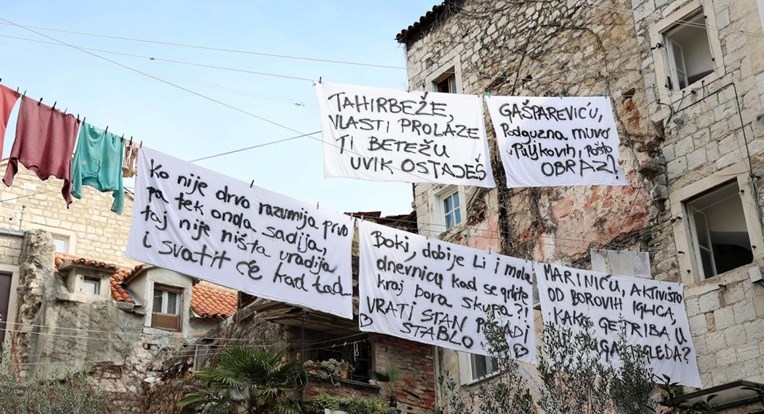 TAHIRBEŽE,
VLASTI PROLAZE
TI BETEŽU
UVIK OSTAJEŠ
GAŠPAREVIĆU,
Podguzna muvo
Puljkovih, Pošto
OBRAZ!
Ko nije drvo razumija prvo
pa tek onda sadija,
taj nije ništa uradija
i svatit će kad tad...
Boki, dobije Li i mala
dnevnicu kad se grlite
kraj bora skupa?!
VRATI STAN POSADI
STABLO
MARINIĆU, AKTIVISTO
OD BOROVIH IGLICA,
KAKO GETRIBA U
GA GLEDA?